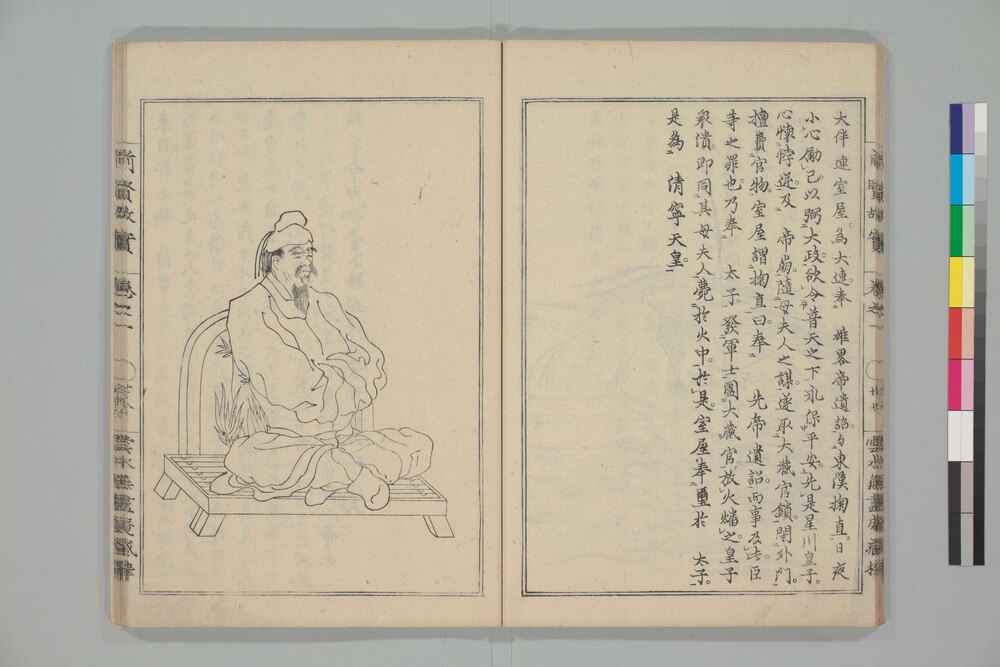 大伴連室屋為大連奉　雄畧帝遺詔与東漢掬直日夜
小心勵己以弼大政欲令普天之下永保平安先是星川皇子
心懐悖逆及　帝崩隨母夫人之謀遂取大蔵官鎖閉外門
擅費官物室屋謂掬直曰奉　先帝遺詔而事及此臣
等之罪也乃奉　太子發軍士圍大蔵官放火燔之皇子
衆潰即同其母夫人薨於火中於是室屋奉璽於　太子
是為　清寧天皇
前賢故實
卷之一